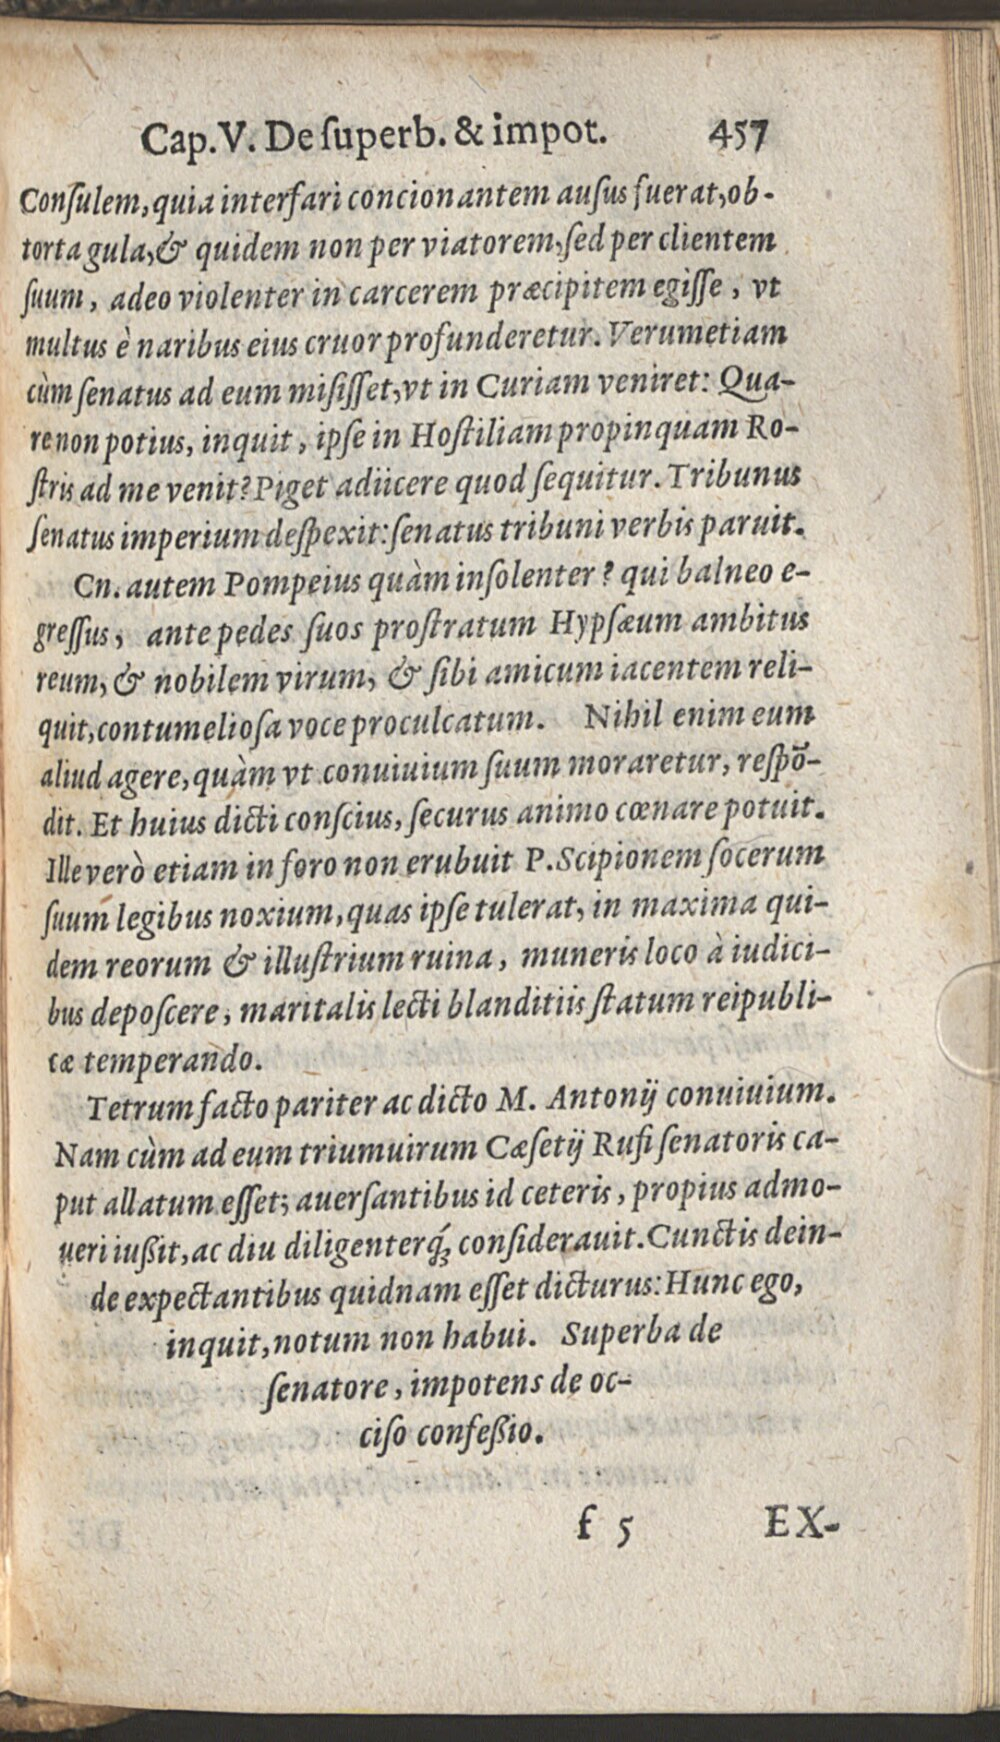 Cap. V. De ſuperb. & impot. 457
Conſulem, quia interfari concionantem auſus fuerat, ob-
torta gula, & quidem non per viatorem, ſed per clientem
ſuum, adeo violenter in carcerem præcipitem egiſſe, vt
multus è naribus eius cruor profunderetur. Verumetiam
cùm ſenatus ad eum miſiſſet, vt in Curiam veniret: Qua-
re non potius, inquit, ipſe in Hoſtiliam propinquam Ro-
ſtris ad me venit? Piget adiicere quod ſequitur. Tribunus
ſenatus imperium deſpexit: ſenatus tribuni verbis paruit.
Cn. autem Pompeius quàm inſolenter? qui balneo e-
greſſus, ante pedes ſuos proſtratum Hypſæum ambitus
reum, & nobilem virum, & ſibi amicum iacentem reli-
quit, contumelioſa voce proculcatum. Nihil enim eum
aliud agere, quàm vt conuiuium ſuum moraretur, reſpõ-
dit. Et huius dicti conſcius, ſecurus animo cœnare potuit.
Ille verò etiam in foro non erubuit P. Scipionem ſocerum
ſuum legibus noxium, quas ipſe tulerat, in maxima qui-
dem reorum & illuſtrium ruina, muneris loco à iudici-
bus depoſcere, maritalis lecti blanditiis ſtatum reipubli-
cæ temperando.
Tetrum facto pariter ac dicto M. Antonij conuiuium.
Nam cùm ad eum triumuirum Cæſetij Rufi ſenatoris ca-
put allatum eſſet; auerſantibus id ceteris, propius admo-
ueri iußit, ac diu diligenterq́; conſiderauit. Cunctis dein-
de expectantibus quidnam eſſet dicturus: Hunc ego,
inquit, notum non habui. Superba de
ſenatore, impotens de oc-
ciſo confeßio.
f 5 EX-